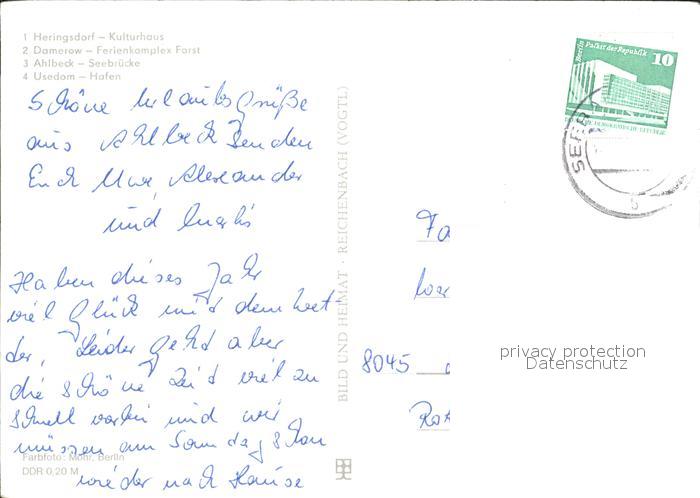 1 Heringsdorf – Kulturhaus
2 Damerow – Ferienkomplex Forst
3 Ahlbeck – Seebrücke
4 Usedom – Hafen
Schöne Urlaubsgrüße
aus Ahlbeck senden
Euch Uwe, Alexander
und
Haben dieses Jahr
viel Glück mit dem Wet-
ter, Leider geht aber
die schöne Zeit viel zu
schnell vorbei und wir
müssen am Sonntag schon
wieder nach Hause
Farbfoto: Mohr, Berlin
DDR 0,20 M
BILD UND HEIMAT · REICHENBACH (VOGTL)
Berlin Palast der Republik
10
SEEB
Fa
8045
privacy protection
Datenschutz